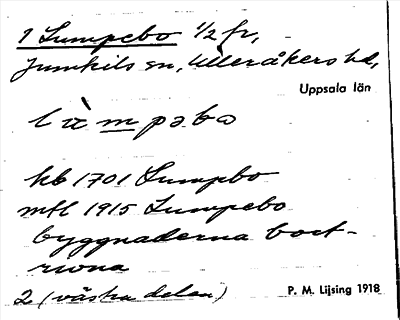 1 Lumpebo 1/2 fr,
Jumkils sn, Ulleråkers hd,
Uppsala län
kb 1701 Lumpbo
mtl 1915 Lumpebo
byggnaderna bort-
rivna
2 (västra delen)
P. M. Lijsing 1918